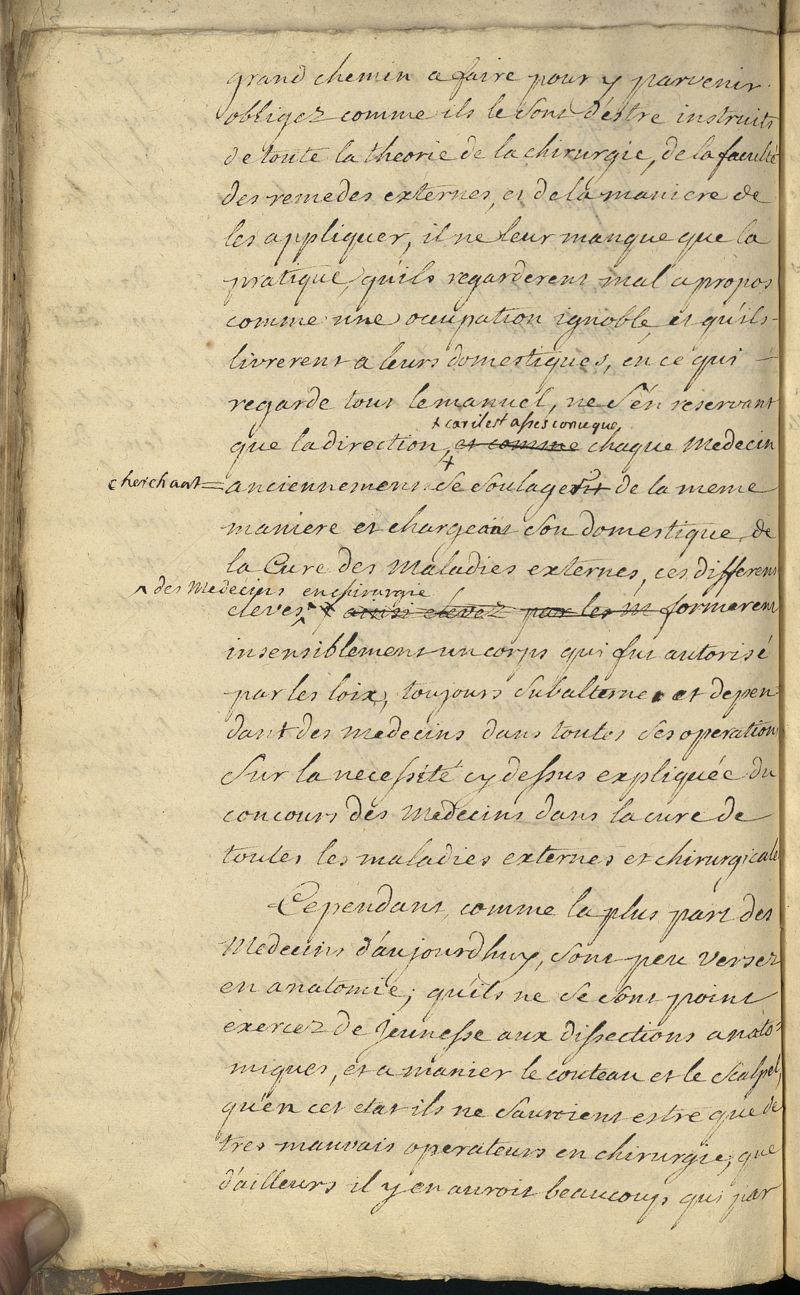 grand chemin a faire pour y parvenir.
obligez comme ils le sont d'estre instruits
de toute la theorie de la chirurgie, de la faculté
des remedes externes, et de la maniere de
les appliquer, il ne leur manque que la
pratique, quils regarderent mal a propos
comme une occupation ignoble, et qu'ils
livrerent a leurs domestiques, en ce qui
regarde tout le manuel, ne s'en reservant
+ car il est asses conu que,
que la direction, + et comme chaque Medecin
cherchant = anciennement se soulageoit de la meme
maniere et chargeant son domestique de
la Cure des Maladies externes, ces differens
^ des Medecins en chirurgie
eleves ^ + ainsi elevez par les M formerent
insensiblement un corps qui fut autorisé
par les loix, toujours subalterne et depen
dant des medecins dans toutes ses operation
sur la necessité cy dessus expliquée du
concours des Medecins dans la cure de
toutes les maladies externes et chirurgicale
Cependant, comme la plus part des
Medecins d'aujourdhuy, sont peu versez
en anatomie; qu'ils ne se sont point
exercez de Jeunesse aux dissections anato-
miques, et a manier le couteau et le scalpel,
qu'en cet etat ils ne sauroient estre que de
tres mauvais operateurs en chirurgie; que
d'ailleurs il y en auroit beaucoup qui par